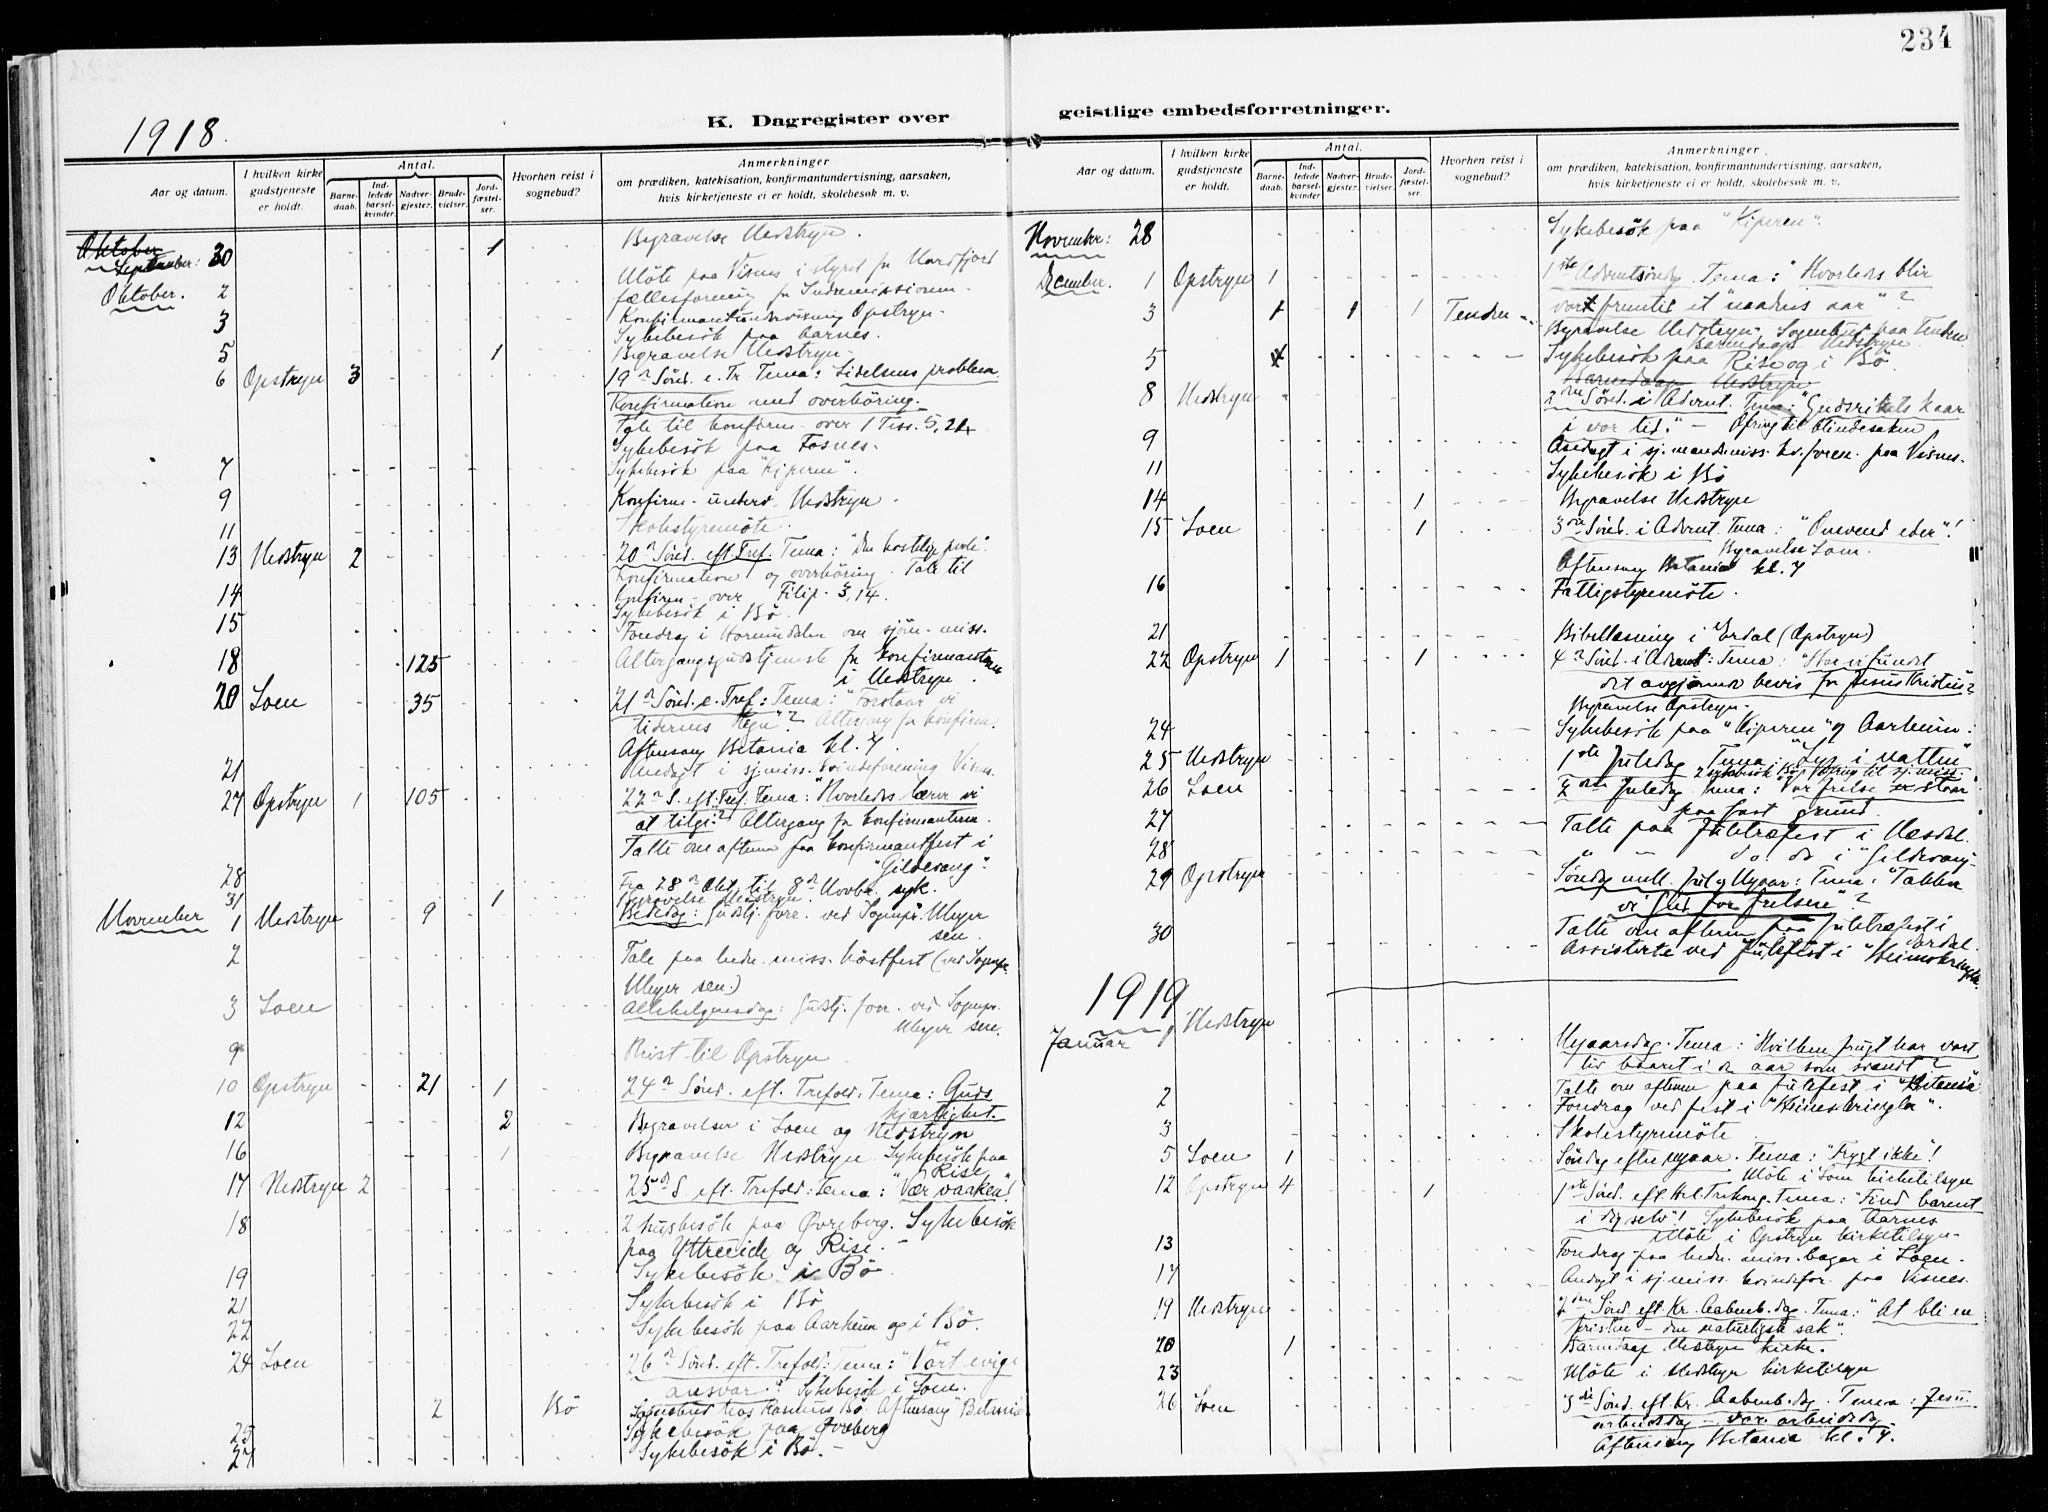 234
1918.
K. Dagregister over
geistlige embedsforretninger.
Aar og datum.
I hvilken kirke gudstjeneste er holdt.
Antal.
Barne-daab.
Ind-ledede barsel-kvinder.
Nadver-gjester.
Brude-vielser.
Jord-fæstel-ser.
Hvorhen reist i sognebud?
Anmerkninger
om prædiken, katekisation, konfirmantundervisning, aarsaken,
hvis kirketjeneste ei er holdt, skolebesøk m. v.
Oktober
September: 30 1 Begravelse Nedstryn.
Oktober. 2 Möte paa Visnes i styret for Nordfjord
fællesforening for Indremissionen.
3 Konfirmantundervisning Opstryn.
Sykebesök paa Aarnes.
5 1 Begravelse Nedstryn.
6 Opstryn 3 19de Sönd. e. Tr. Tema: Lidelsens problem
Konfirmation med overhöring.
Tale til konfirm. over 1 Tess. 5, 24
Sykebesök paa Fosnes.
7 Sykebesök paa "Kiperen".
9 Konfirm. underv. Nedstryn.
11 Skolestyremöte.
13 Nedstryn 2 20de Sönd. eft. Tref. Tema: "Den kostelige perle".
Konfirmation og overhöring. Tale til
14 konfirm. over Filip. 3, 14.
Sykebesök i Bö.
15 Foredrag i Hornindalen om sjöm. miss.
18 125 Altergangsgudstjeneste for konfirmanterne
i Nedstryn.
20 Loen 35 21de Sönd. e. Tref: Tema: "Forstaar vi
tidernes tegn"? Altergang for konfirm.
Aftensang Betania kl. 7.
21 Andagt i sj.miss. kvindeforening Visnes.
27 Opstryn 1 105 22de S. eft. Tref. Tema: "Hvorledes lærer vi
at tilgi"? Altergang for konfirmanterne.
Talte om aftenen paa konfirmantfest i
"Gildevang".
28 Fra 28de Okt. til 8de Novbr. syk.
31 1 Begravelse Nedstryn.
November 1 Nedstryn 9 Bededag: Gudstj. forr. ved Sognepr. Meyer
sen.
2 Tale paa hedn. miss. höstfest (ved Sognepr.
Meyer sen.)
3 Loen Allehelgensdag: Gudstj. forr. ved Sognepr.
Meyer sen.
9 Reist til Opstryn
10 Opstryn 21 1 24de Sönd. eft. Trefold. Tema: Guds
kjærlighet.
12 2 Begravelser i Loen og Nedstryn
16 1 Begravelse Nedstryn. Sykebesök paa
Rise.
17 Nedstryn 2 25de S. eft. Trefold: Tema: "Vær vaaken"!
18 2 husbesök paa Övreberg. Sykebesök
paa Yttreeide og Rise.
19 Sykebesök i Bö
21 Sykebesök i Bö
22 Sykebesök paa Aarheim og i Bö.
24 Loen 26de Sönd. eft. Trefold: Tema: "Vort evige
ansvar." Sykebesök i Loen.
2 Bö Sognebud hos Rasmus Bö. Aftensang "Betania"
25 Sykebesök paa Övreberg
27 Sykebesök i Bö.
November: 28 Sykebesök paa "Kiperen".
December. 1 Opstryn 1 1ste Adventsönd. Tema: "Hvorledes blir
vort fremtid et "naadens aar"?
3 1 1 1 Tenden Begravelse Nedstryn. Sognebud paa Tenden.
Barnedaap Nedstryn.
5 Sykebesök paa Rise og i Bö.
Barnedaap Nedstryn
8 Nedstryn 2den Sönd. i Advent. Tema: "Gudsrikets kaar
i vor tid." - Ofring til blindesaken
9 Andagt i sj.mandsmiss. kv.foren. paa Visnes.
11 Sykebesök i Bö
14 1 Begravelse Nedstryn
15 Loen 1 3die Sönd. i Advent. Tema: "Omvend eder"!
Begravelse Loen.
Aftensang Betania kl. 7
16 Fattigstyremöte.
21 Bibellæsning i Erdal (Opstryn)
22 Opstryn 1 1 4de Sönd. i Advent: Tema: "Har vi fundet
det avgjörende bevis for Jesus Kristus"?
Begravelse Opstryn.
24 Sykebesök paa "Kiperen" og Aarheim.
25 Nedstryn 1ste Juledag Tema: "Lys i natten"
2 sykebesök i Bö. Ofring til sj. miss.
26 Loen 2den Juledag Tema: "Vor frelse er staar
paa fast grund.
27 Talte paa juletræfest i Næsdal.
28 " - do. do i "Gildevang".
29 Opstryn Söndag mell. Jul og Nyaar: Tema: "Takker
vi Gud for frelsen"?
Talte om aftenen paa juletræfest i
Erdal.
30 Assisterte ved julefest i "Heimskringla".
1919
Januar 1 Nedstryn Nyaarsdag. Tema: "Hvilken frugt har vort
liv baaret i de aar som svandt?
Talte om aftenen paa julefest i "Betania"
2 Foredrag ved fest i "Heimskringla".
3 Skolestyremöte
5 Loen 1 Söndag efter nyaar. Tema: "Frygt ikke"!
Möte i Loen kirketilsyn
12 Opstryn 4 1 1ste Sönd. eft. Hel. Trekong. Tema: "Find barnet
i dig selv"! Sykebesök paa Aarnes
Möte i Opstryn kirketilsyn.
13 Foredrag paa hedn. miss. bazar i Loen.
17 Andagt i sj.miss. kvindefor. paa Visnes.
19 Nedstryn 2den Sönd. eft. Kr. Aabenb. dag. Tema: "At bli en
kristen - den naturligste sak".
20 1 Barnedaap Nedstryn kirke.
23 Möte i Nedstryn kirketilsyn
26 Loen 3die Sönd. eft. Kr. Aabenb. dg. Tema: Jesu
arbeidsdag - vor arbeidsdag.
Aftensang Betania kl. 7.